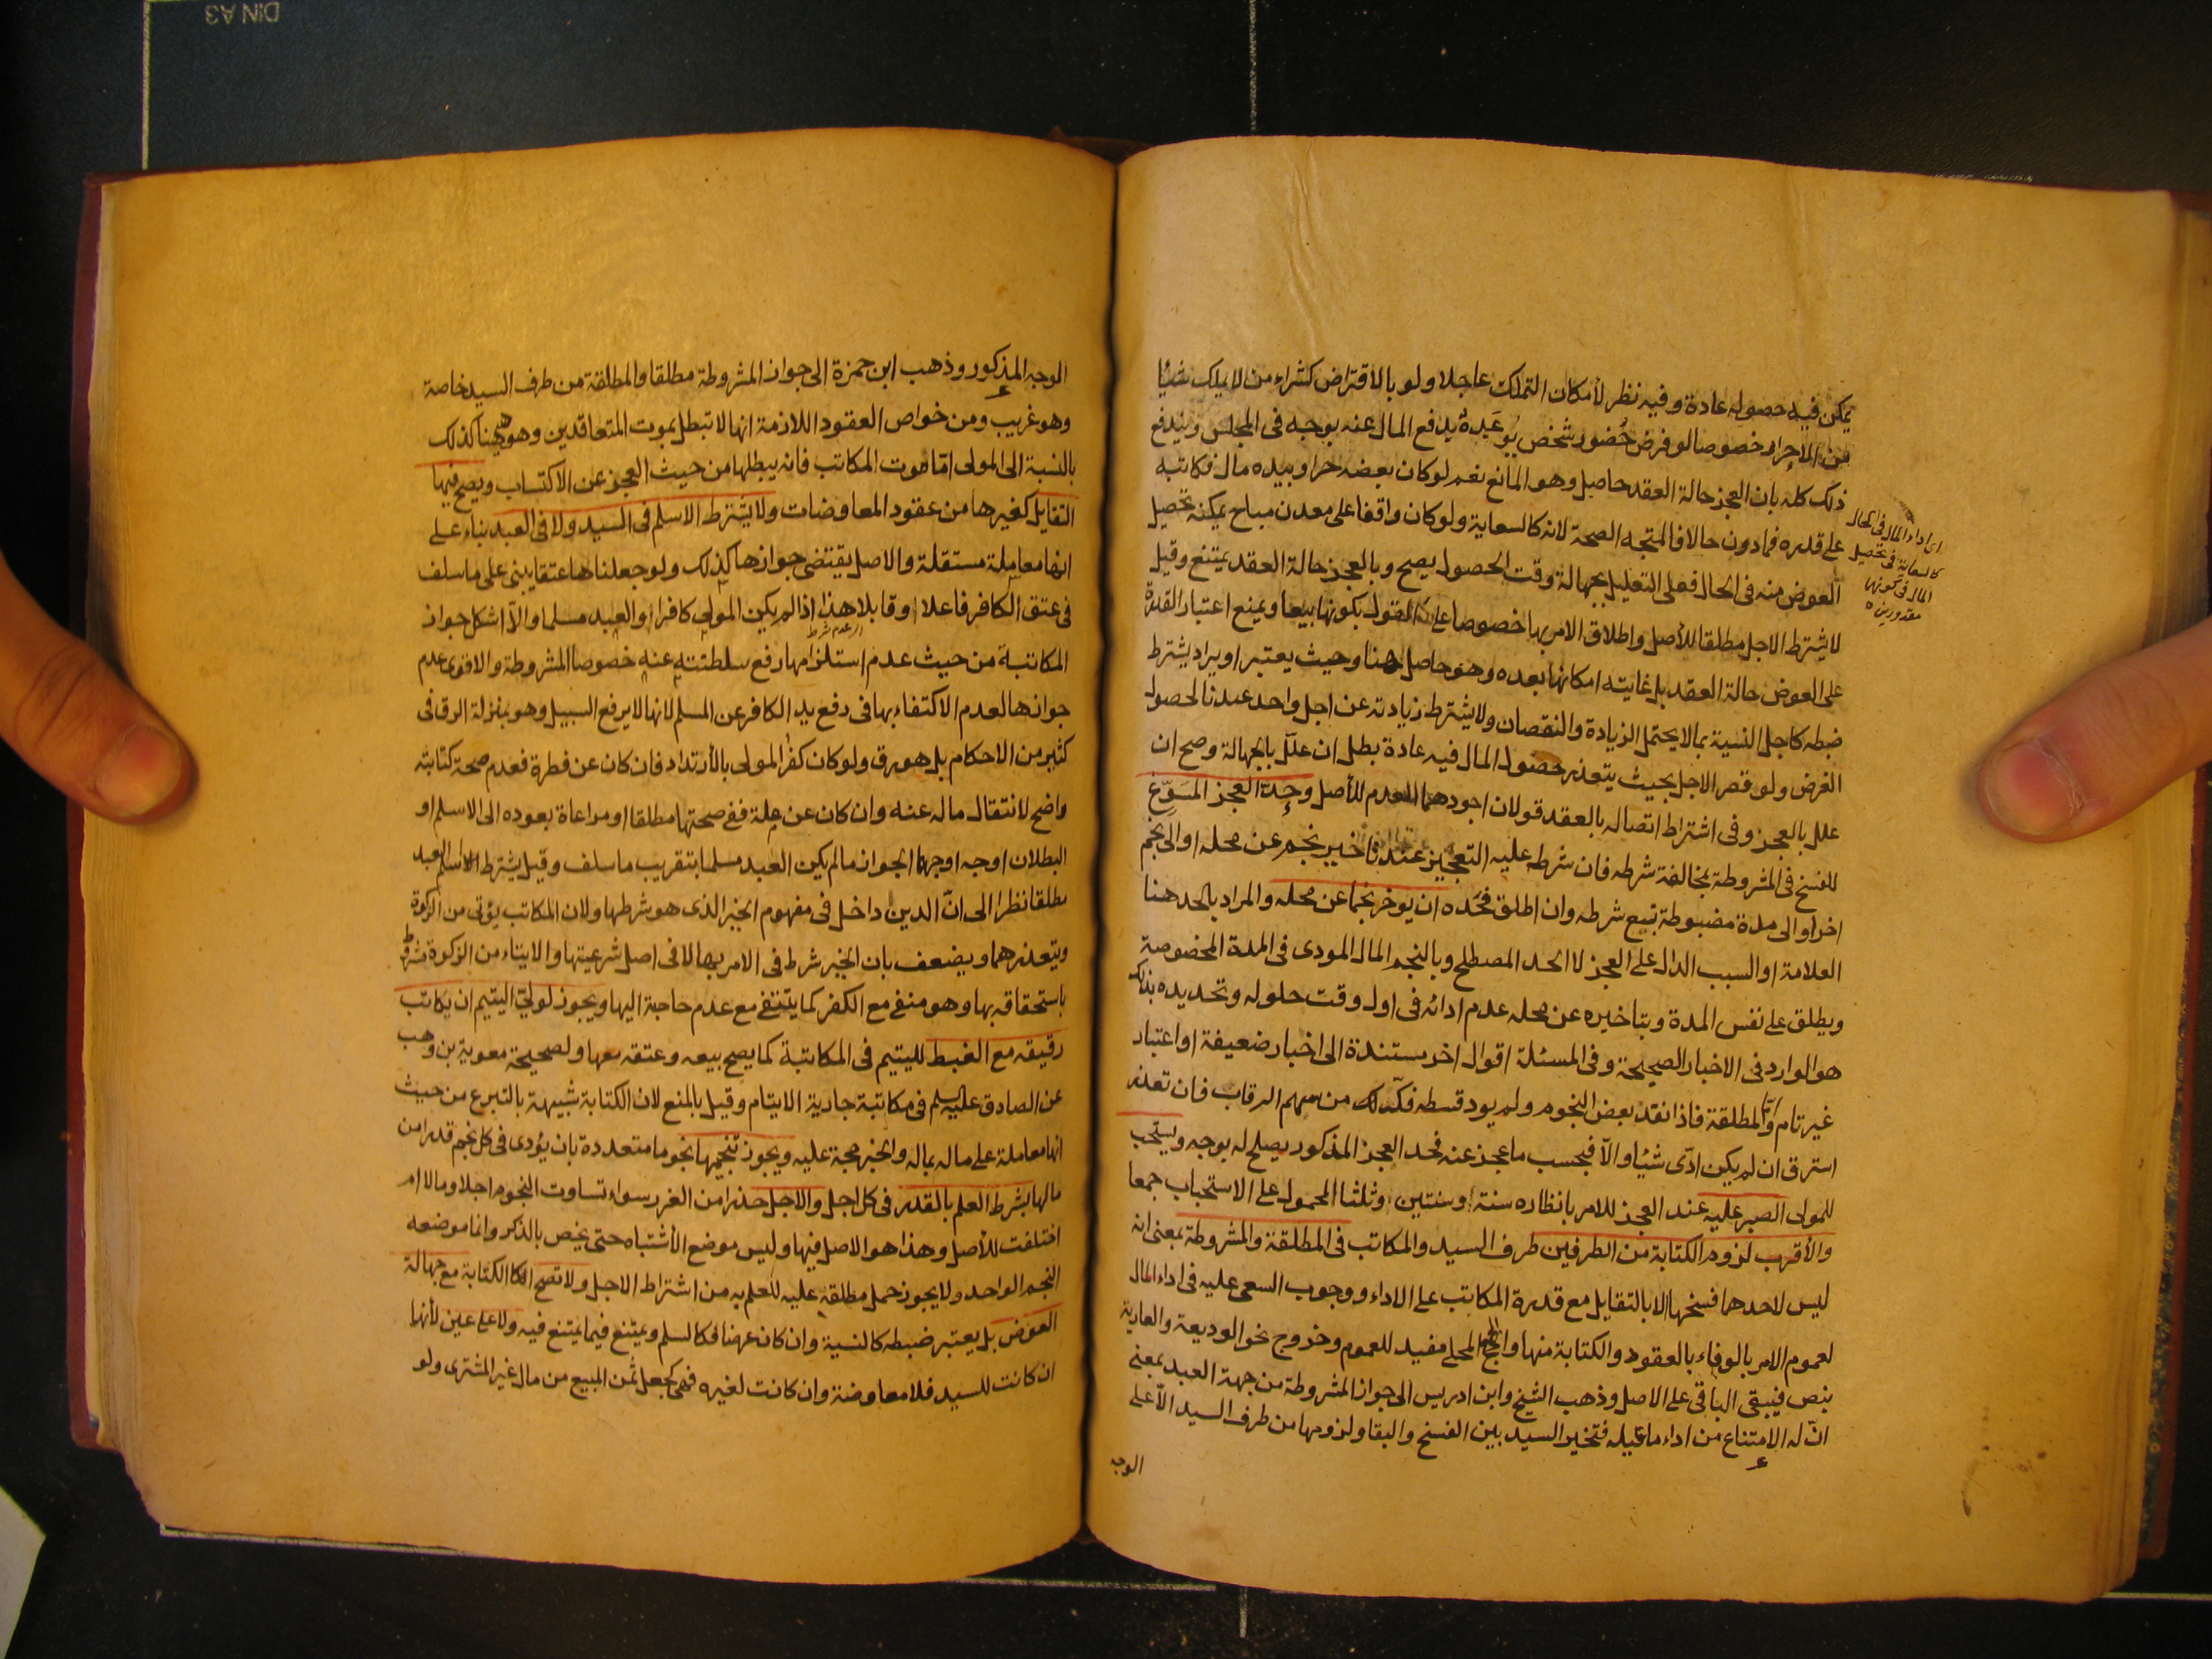 يمكن فيه حصوله عادة وفيه نظر لأمكان التملك عاجلا ولو بالاقتراض كشراء من لا يملك شيئا
من الاحرار خصوصا لو فرض حضور شخص يوعده بدفع المال عنه بوجه في المجلس ويندفع
ذلك كله بان العجز حالة العقد حاصل وهو المانع نعم لو كان بعضه حرا وبيده مال فكاتبه
على قدره فما دون حالا فالمتجه الصحة لانه كالسعاية ولو كان واقفا على معدن مباح يمكنه تحصيل
العوض منه في الحال فعلى التعليل بجهالة وقت الحصول يصح وبالعجز حالة العقد يمتنع وقيل
لا يشترط الاجل مطلقا للأصل واطلاق الامر بها خصوصا على القول بكونها بيعا ويمنع اعتبار القدرة
على العوض حالة العقد بل غايته امكانها بعده وهو حاصل هنا وحيث يعتبر او يراد يشترط
ضبطه كاجل النسية بما لا يحتمل الزيادة والنقصان ولا يشترط زيادته عن اجل واحد عندنا لحصول
الغرض ولو قصر الاجل بحيث يتعذر حصول المال فيه عادة بطل ان علل بالجهالة وصح ان
علل بالعجز وفي اشتراط اتصاله بالعقد قولان اجودهما العدم للأصل وحد العجز المسوغ
للفسخ في المشروطة بمخالفة شرطه فان شرط عليه التعجيز عند تأخير نجم عن محله او الى نجم
اخر او الى مدة مضبوطة تبع شرطه وان اطلق فحده ان يوخر نجما عن محله والمراد بالحد هنا
العلامة او السبب الدال على العجز لا الحد المصطلح وبالنجم المال المودى في المدة المخصوصة
ويطلق على نفس المدة وبتاخيره عن محله عدم ادائه في اول وقت حلوله وتحديده بذلك
هو الوارد في الاخبار الصحيحة وفي المسئلة اقوال اخر مستندة الى اخبار ضعيفة او اعتبار
غير تام واما المطلقة فاذا نفذ بعض النجوم ولم يود قسطه فك من سهم الرقاب فان تعذر
استرق ان لم يكن ادى شيئا والا فبحسب ما عجز عنه فحد العجز المذكور يصلح له بوجه ويستحب
للمولى الصبر عليه عند العجز للامر بانظاره سنة او سنتين او ثلثا المحمول على الاستحباب جمعا
والأقرب لزوم الكتابة من الطرفين طرف السيد والمكاتب في المطلقة والمشروطة بمعنى انه
ليس لاحدهما فسخها الا بالتقايل مع قدرة المكاتب على الاداء ووجوب السعى عليه في اداء المال
لعموم الامر بالوفاء بالعقود والكتابة منها والجمع المحلى مفيد للعموم وخروج نحو الوديعة والعارية
بنص فيبقى الباقي على الاصل وذهب الشيخ وابن ادريس الى جواز المشروطة من جهة العبد بمعنى
ان له الامتناع من اداء ما عليه فتخير السيد بين الفسخ والبقا ولزومها من طرف السيد الا على
الوجه
اى اداء المال في الحال
كالسعاية في تحصيل
المال في كونهما
مقدورين
الوجه المذكور وذهب ابن حمزة الى جواز المشروطة مطلقا والمطلقة من طرف السيد خاصة
وهو غريب ومن خواص العقود اللازمة انها لا تبطل بموت المتعاقدين وهو هنا كذلك
بالنسبة الى المولى اما موت المكاتب فانه يبطلها من حيث العجز عن الاكتساب ويصح فيها
التقايل كغيرها من عقود المعاوضات ولا يشترط الاسلم في السيد ولا في العبد بناء على
انها معاملة مستقلة والاصل يقتضى جوازها كذلك ولو جعلناها عتقا يبنى على ما سلف
في عتق الكافر فاعلا وقابلا هذا اذا لم يكن المولى كافرا والعبد مسلما والا اشكل جواز
المكاتبة من حيث عدم استلزامها رفع سلطنته عنه خصوصا المشروطة والاقوى عدم
جوازها لعدم الاكتفاء بها في رفع يد الكافر عن المسلم لانها لا يرفع السبيل وهو بمنزلة الرق في
كثير من الاحكام بل هو رق ولو كان كفر المولى بالأرتداد فان كان عن فطرة فعدم صحة كتابته
واضح لانتقال ماله عنه وان كان عن ملة ففي صحتها مطلقا او مراعاة بعوده الى الاسلم او
البطلان اوجه اوجهها الجواز ما لم يكن العبد مسلما بتقريب ما سلف وقيل يشترط اسلم العبد
مطلقا نظرا الى ان الدين داخل في مفهوم الخير الذى هو شرطها ولان المكاتب يؤتى من الزكوة
ويتعذر هنا ويضعف بان الخير شرط في الامر بها لا في اصل شرعيتها والايتاء من الزكوة مشروط
باستحقاقه بها وهو منفى مع الكفر كما ينتفى مع عدم حاجة اليها ويجوز لولي اليتيم ان يكاتب
رقيقه مع الغبطة لليتيم في المكاتبة كما يصح بيعه وعتقه معها ولصحيحة معوية بن وهب
عن الصادق عليه السلم في مكاتبة جارية الايتام وقيل بالمنع لان الكتابة شبيهة بالتبرع من حيث
انها معاملة على ماله بماله والخبر حجة عليه ويجوز تنجيمها نجوما متعددة بان يؤدى في كل نجم قدرا من
مالها بشرط العلم بالقدر في كل اجل والاجل حذرا من الغرر سواء تساوت النجوم اجلا ومالا ام
اختلفت للأصل وهذا هو الاصل فيها وليس موضع الأشتباه حتى يخص بالذكر وانما موضعه
النجم الواحد ولا يجوز حمل مطلقه عليه للعلم به من اشتراط الاجل ولا تصح الكتابة مع جهالة
العوض بل يعتبر ضبطه كالنسية وان كان عرضا فكالسلم ويمتنع فيما يمتنع فيه ولا على عين لأنها
ان كانت للسيد فلا معاوضة وان كانت لغيره فهى كجعل ثمن المبيع من مال غير المشترى ولو
DIN A3